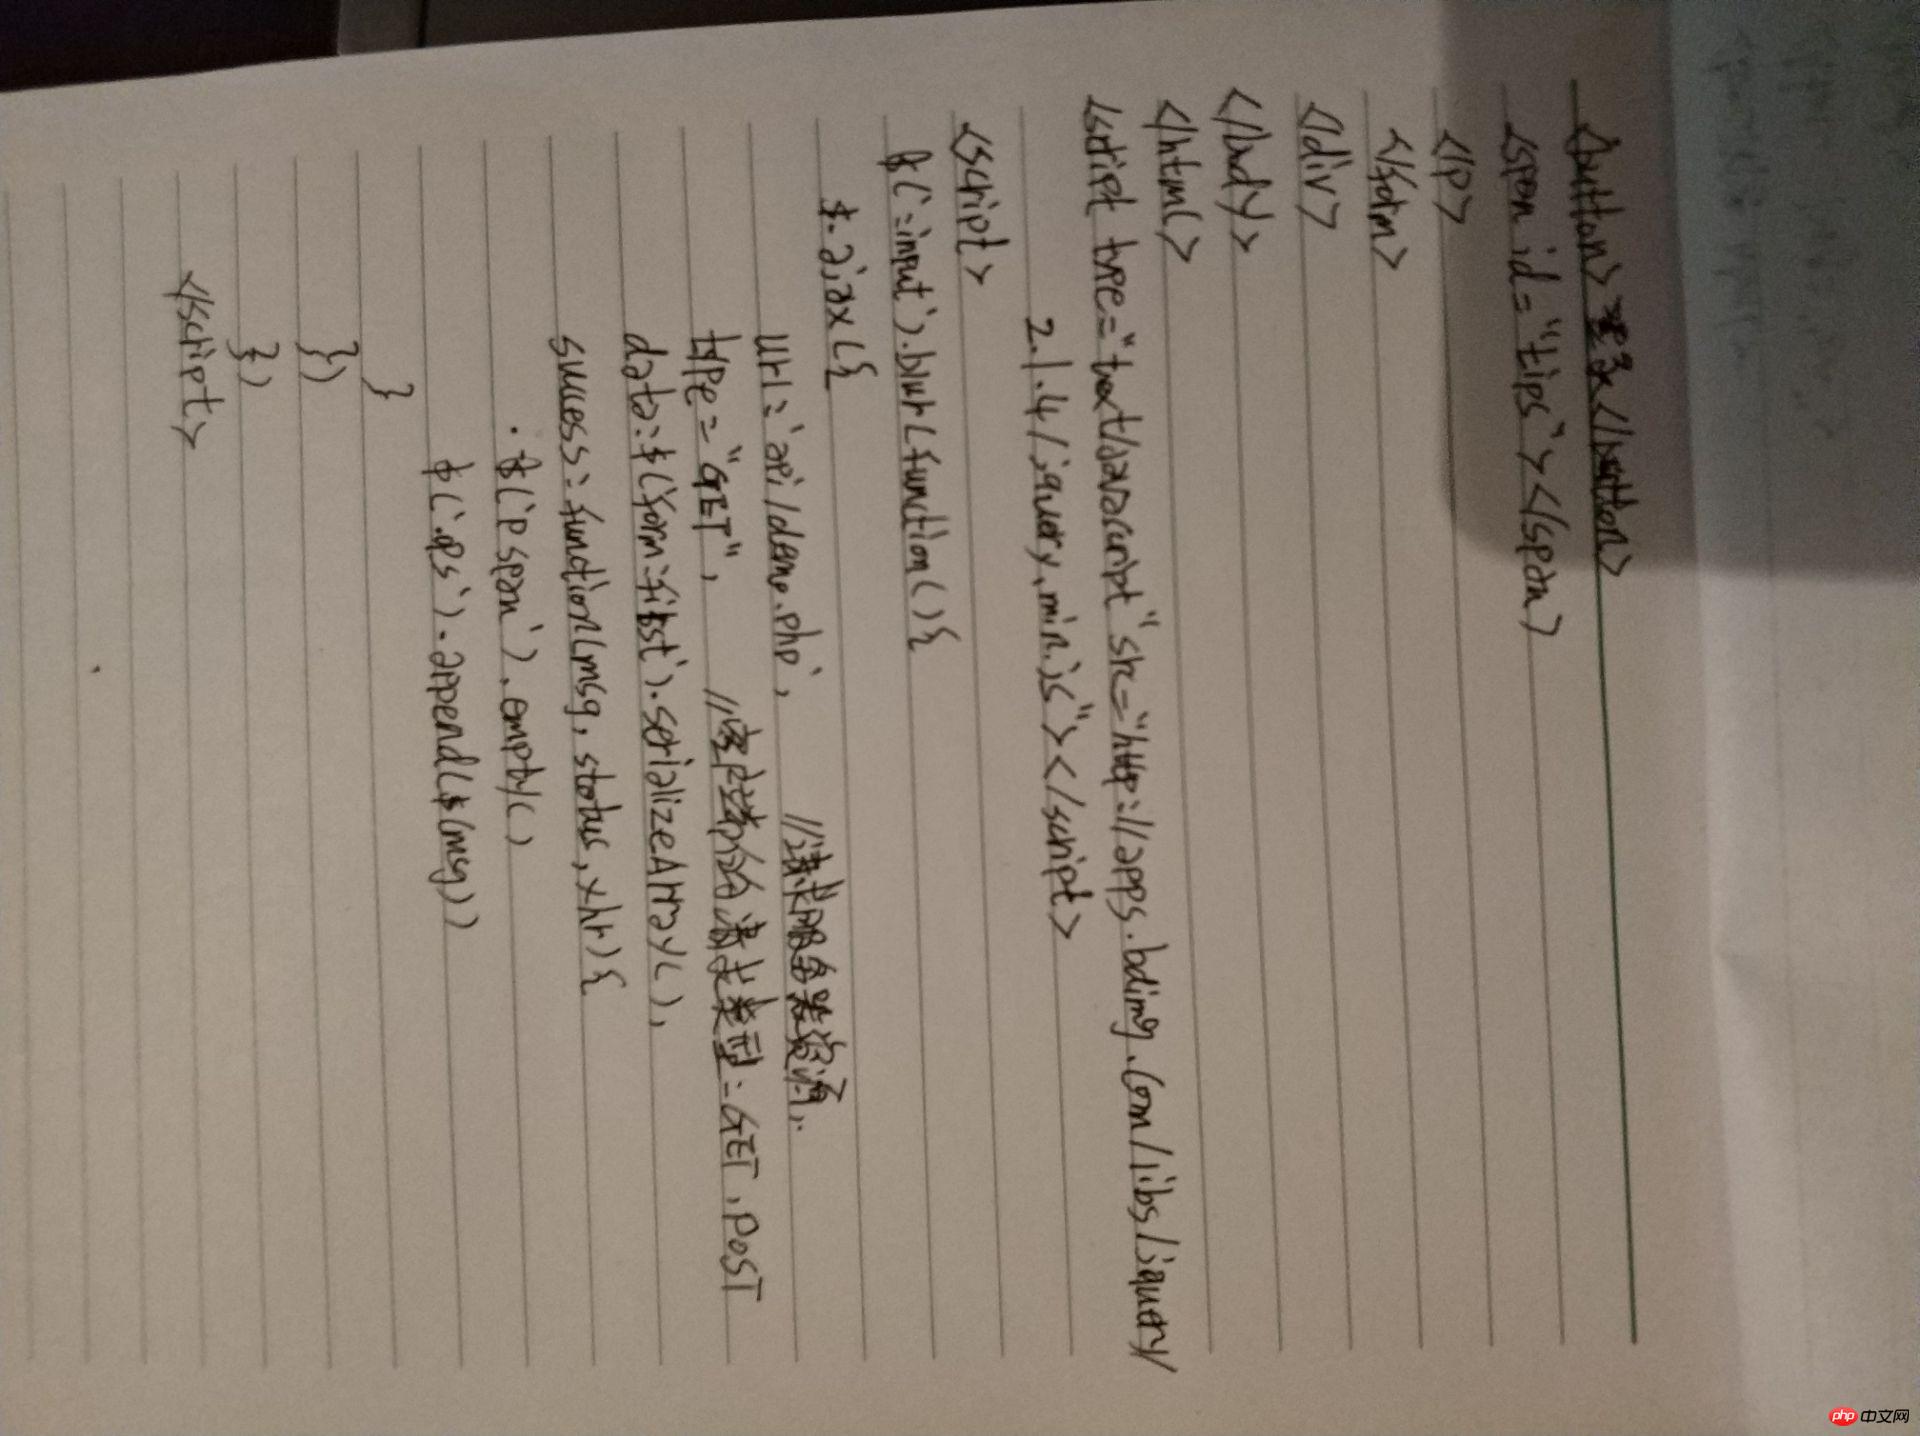 <button>登录</button>
<span id="tips"></span>
</p>
</form>
</div>
</body>
</html>
<script type="text/javascript" src="http://apps.bdimg.com/libs/jquery/
2.1.4/jquery.min.js"></script>
<script>
$(':input').blur(function(){
$.ajax({
url='api/demo.php', //请求服务器资源..
type="GET", //客户端的请求类型:GET,POST
data:$('form:first').serializeArray(),
success:function(msg,status,xhr){
$('p span').empty()
.append($(msg))
}
})
})
</script>
php 中文网